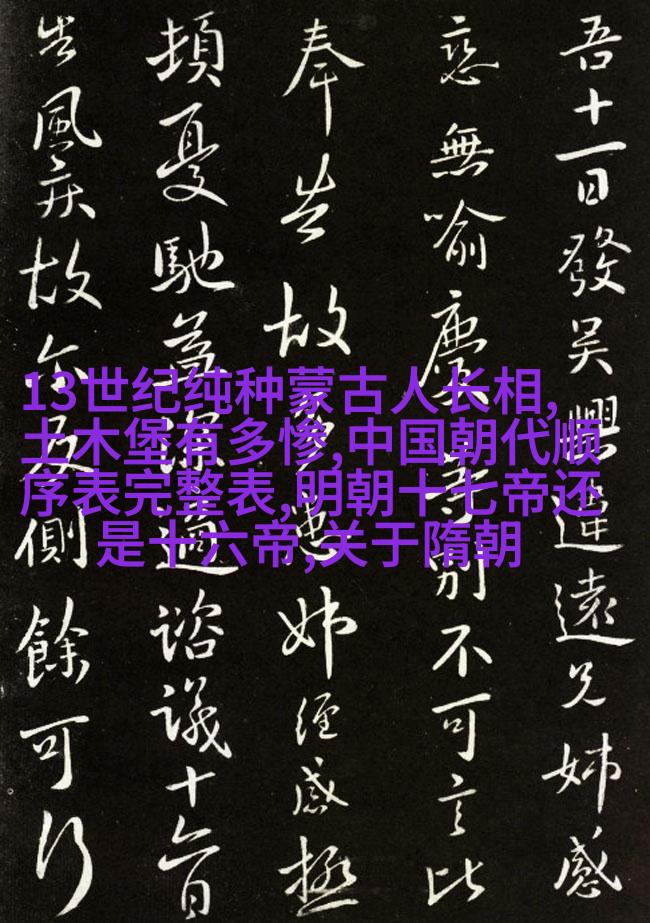 吾十一日發吳興違遠兄姊感
戀無喻慶等別不可言比
奉告故多患姊經感極
頓憂馳為深適諮議十六日
告風疾故尔反側餘可行
13世纪纯种蒙古人长相,
土木堡有多惨,中国朝代顺
序表完整表,明朝十七帝还
是十六帝,关于隋朝